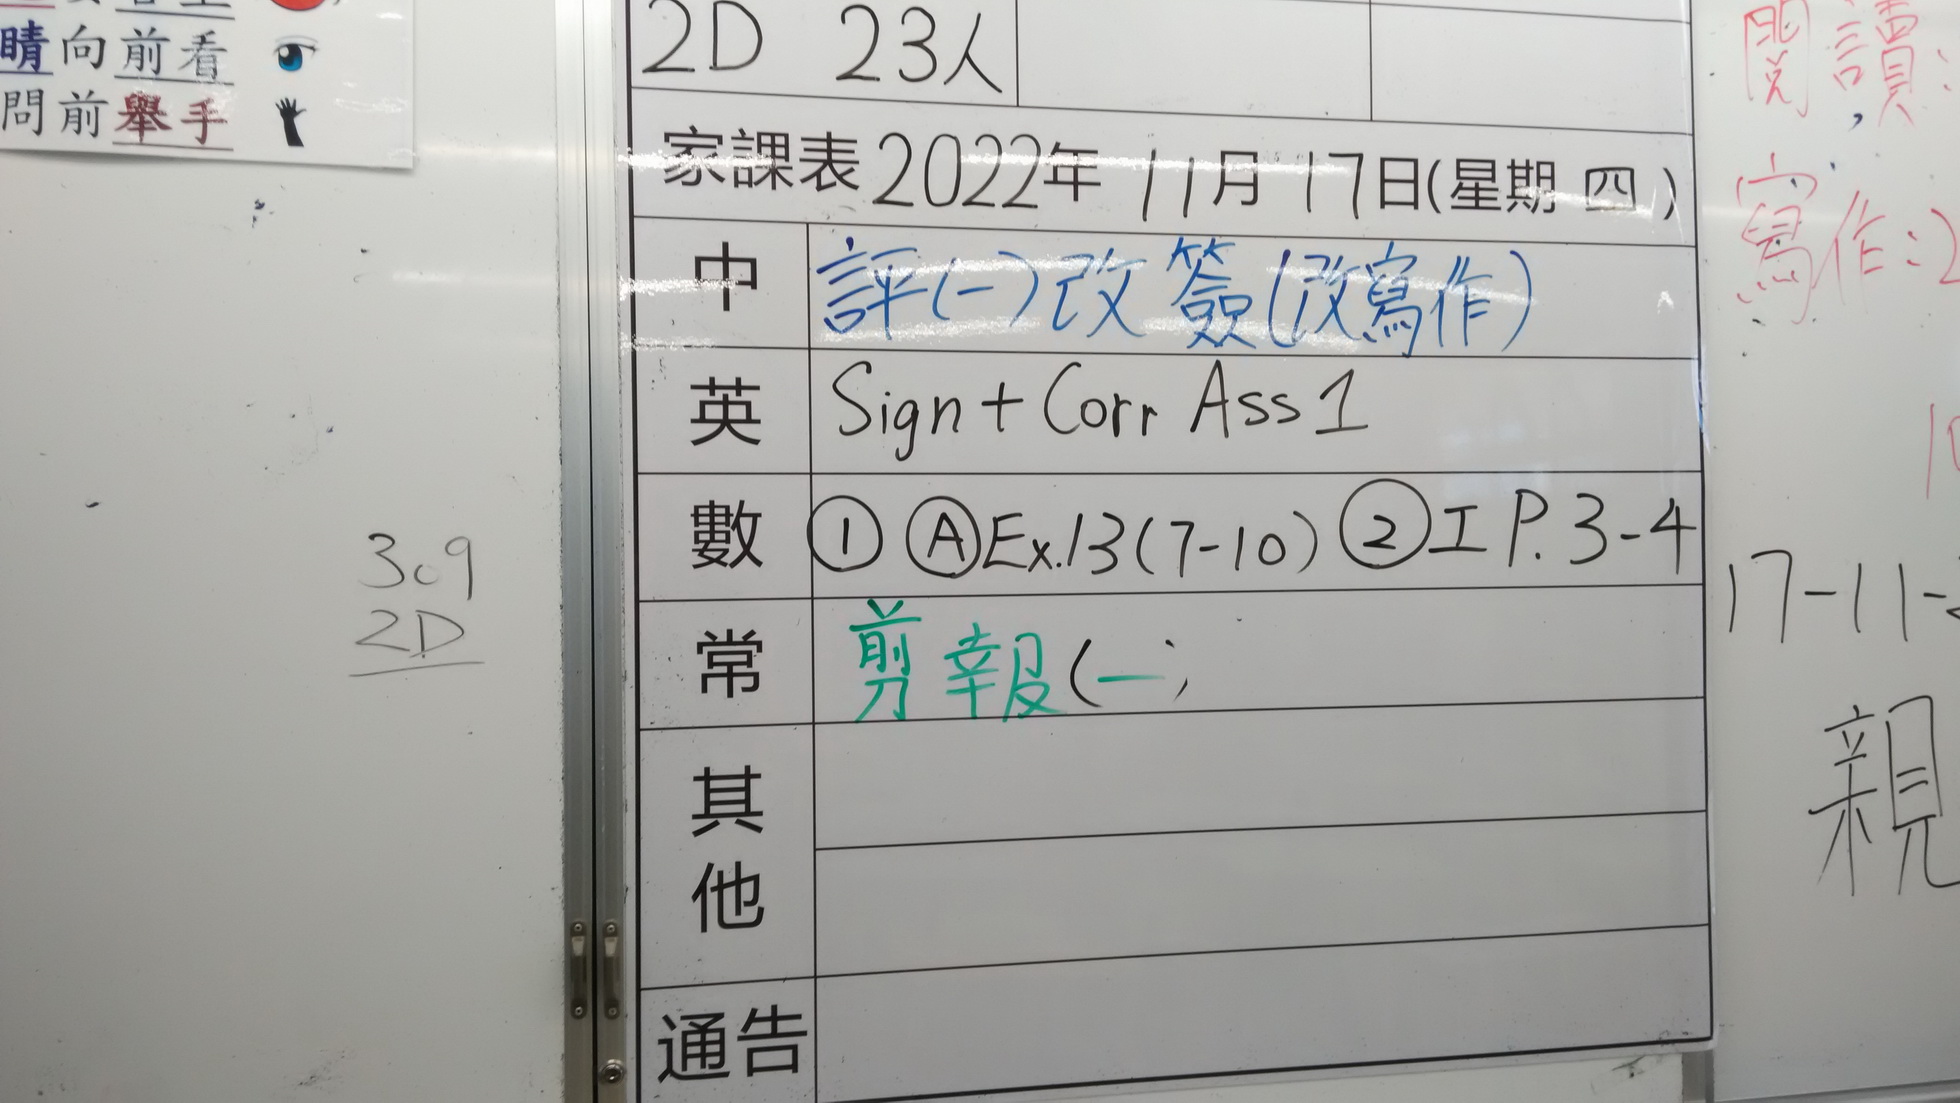 睛向前看
問前舉手
2D 23人
家課表2022年 11月17日(星期 四)
中 評(一)改 簽(改寫作)
英 Sign + Corr Ass 1
數 ① Ⓐ Ex.13(7-10) ② I P.3-4
常 剪報(一)
其他
通告
309
2D
閱讀:
寫作:2
17-11-
親